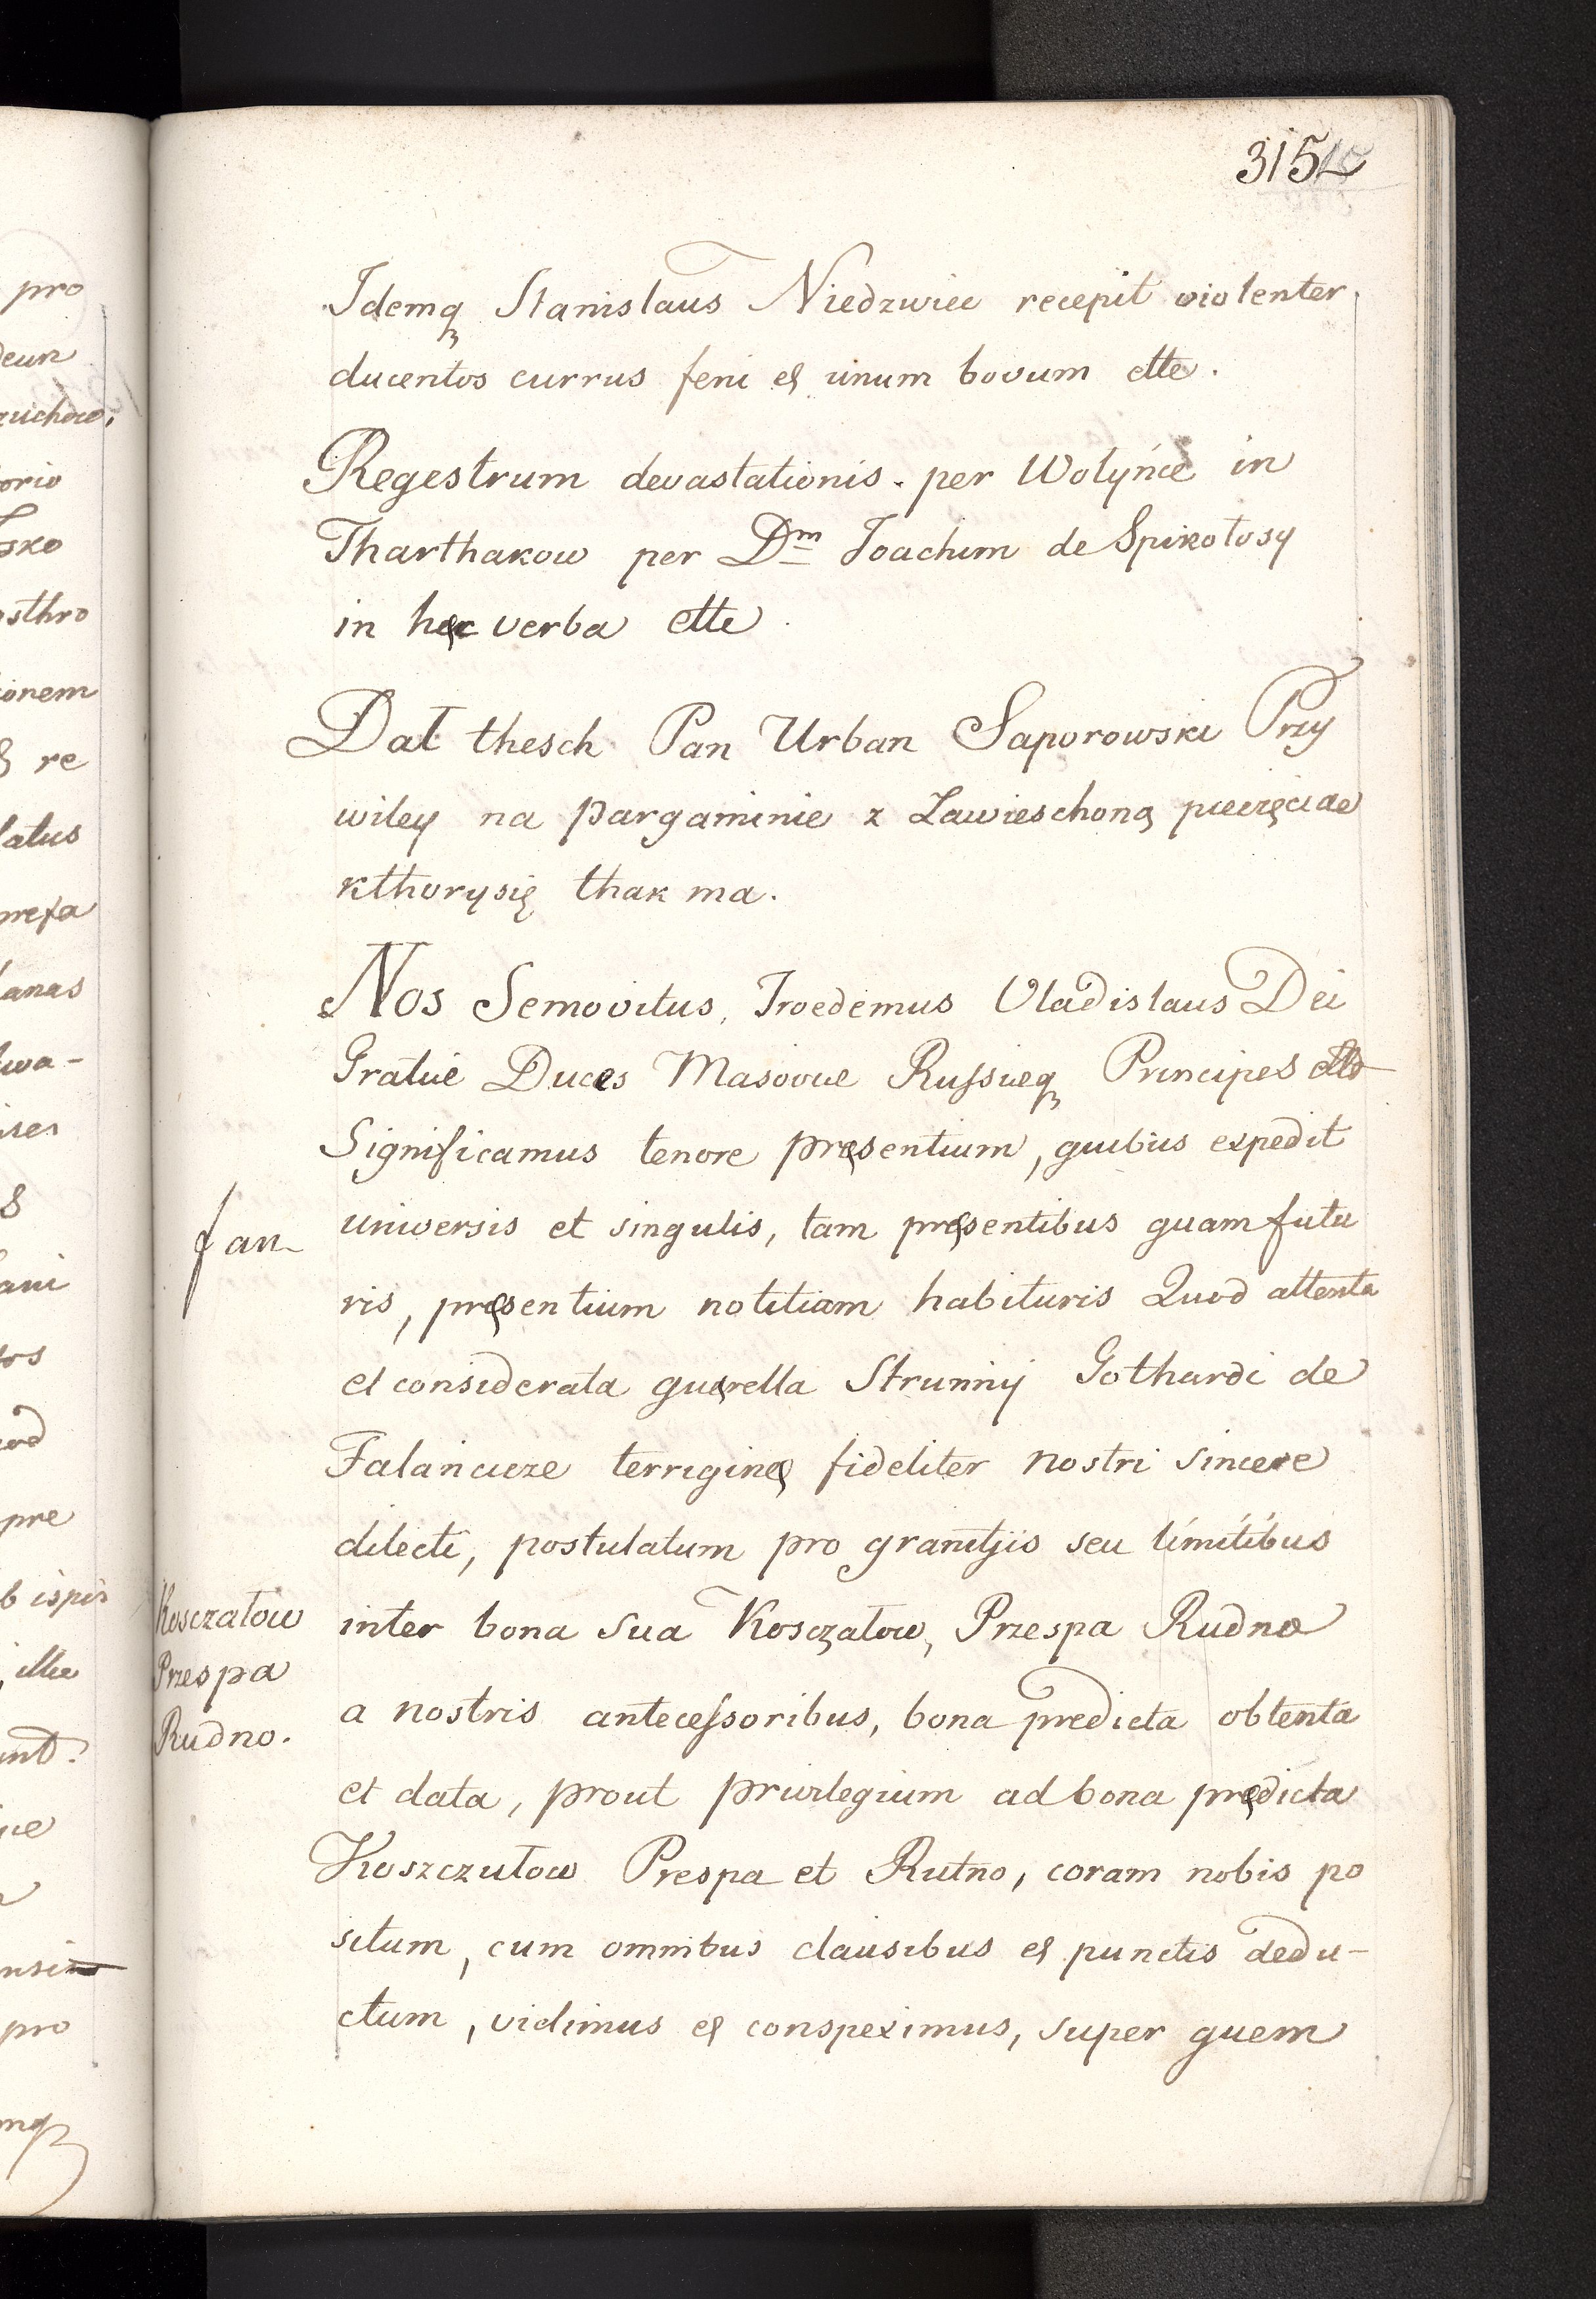 315
Idemq Stanislaus Niedzwiec recepit violenter
ducentos currus feni et unum bovum ette.
Regestrum devastationis per Wolyńce in
Tharthakow per Dm Joachim de Spikołosy
in hęc verba ette
Dał thesch Pan Urban Saporowski Przy
wiley na pargaminie z Zawieschoną pieczęciąe
kthorysię thak ma.
Nos Semovitus, Troedemus Vladislaus Dei
Gratiie Duces Masoviie Russieq Principes ette
Significamus tenore pręsentium, quibus expedit
universis et singulis, tam pręsentibus quam futu
ris, pręsentium notitiam habituris Quod attenta
et considerata quęrella Strunnij Gothardi de
Falancieze terriginę fideliter nostri sincere
dilecti, postulatum pro granitijs seu limitibus
inter bona sua Koscząłow, Przespa Rudno
a nostris antecessoribus, bona predicta obtenta
et data, prout privilegium ad bona prędicta
Koszczułow Prespa et Rutno, coram nobis po
situm, cum omnibus clausibus et punctis dedu-
ctum, vidimus et conspeximus, super quem
Kosczałow
Przespa
Rudno.
pro
orio
osthro
ionem
re
latus
lanas
pre
pro